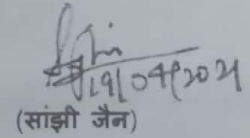 19/04/2021
(सांझी जैन)